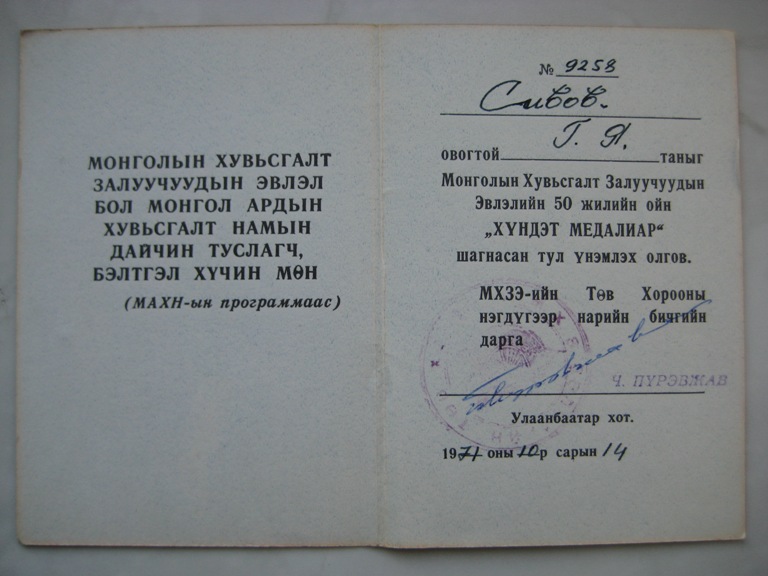 МОНГОЛЫН ХУВЬСГАЛТ
ЗАЛУУЧУУДЫН ЭВЛЭЛ
БОЛ МОНГОЛ АРДЫН
ХУВЬСГАЛТ НАМЫН
ДАЙЧИН ТУСЛАГЧ,
БЭЛТГЭЛ ХҮЧИН МӨН
(МАХН-ын программаас)
№ 9258
Сивов.
Г. Я.
овогтой таныг
Монголын Хувьсгалт Залуучуудын
Эвлэлийн 50 жилийн ойн
„ХҮНДЭТ МЕДАЛИАР“
шагнасан тул үнэмлэх олгов.
МХЗЭ-ийн Төв Хорооны
нэгдүгээр нарийн бичгийн
дарга
Ч. ПҮРЭВЖАВ
Улаанбаатар хот.
1971 оны 10р сарын 14